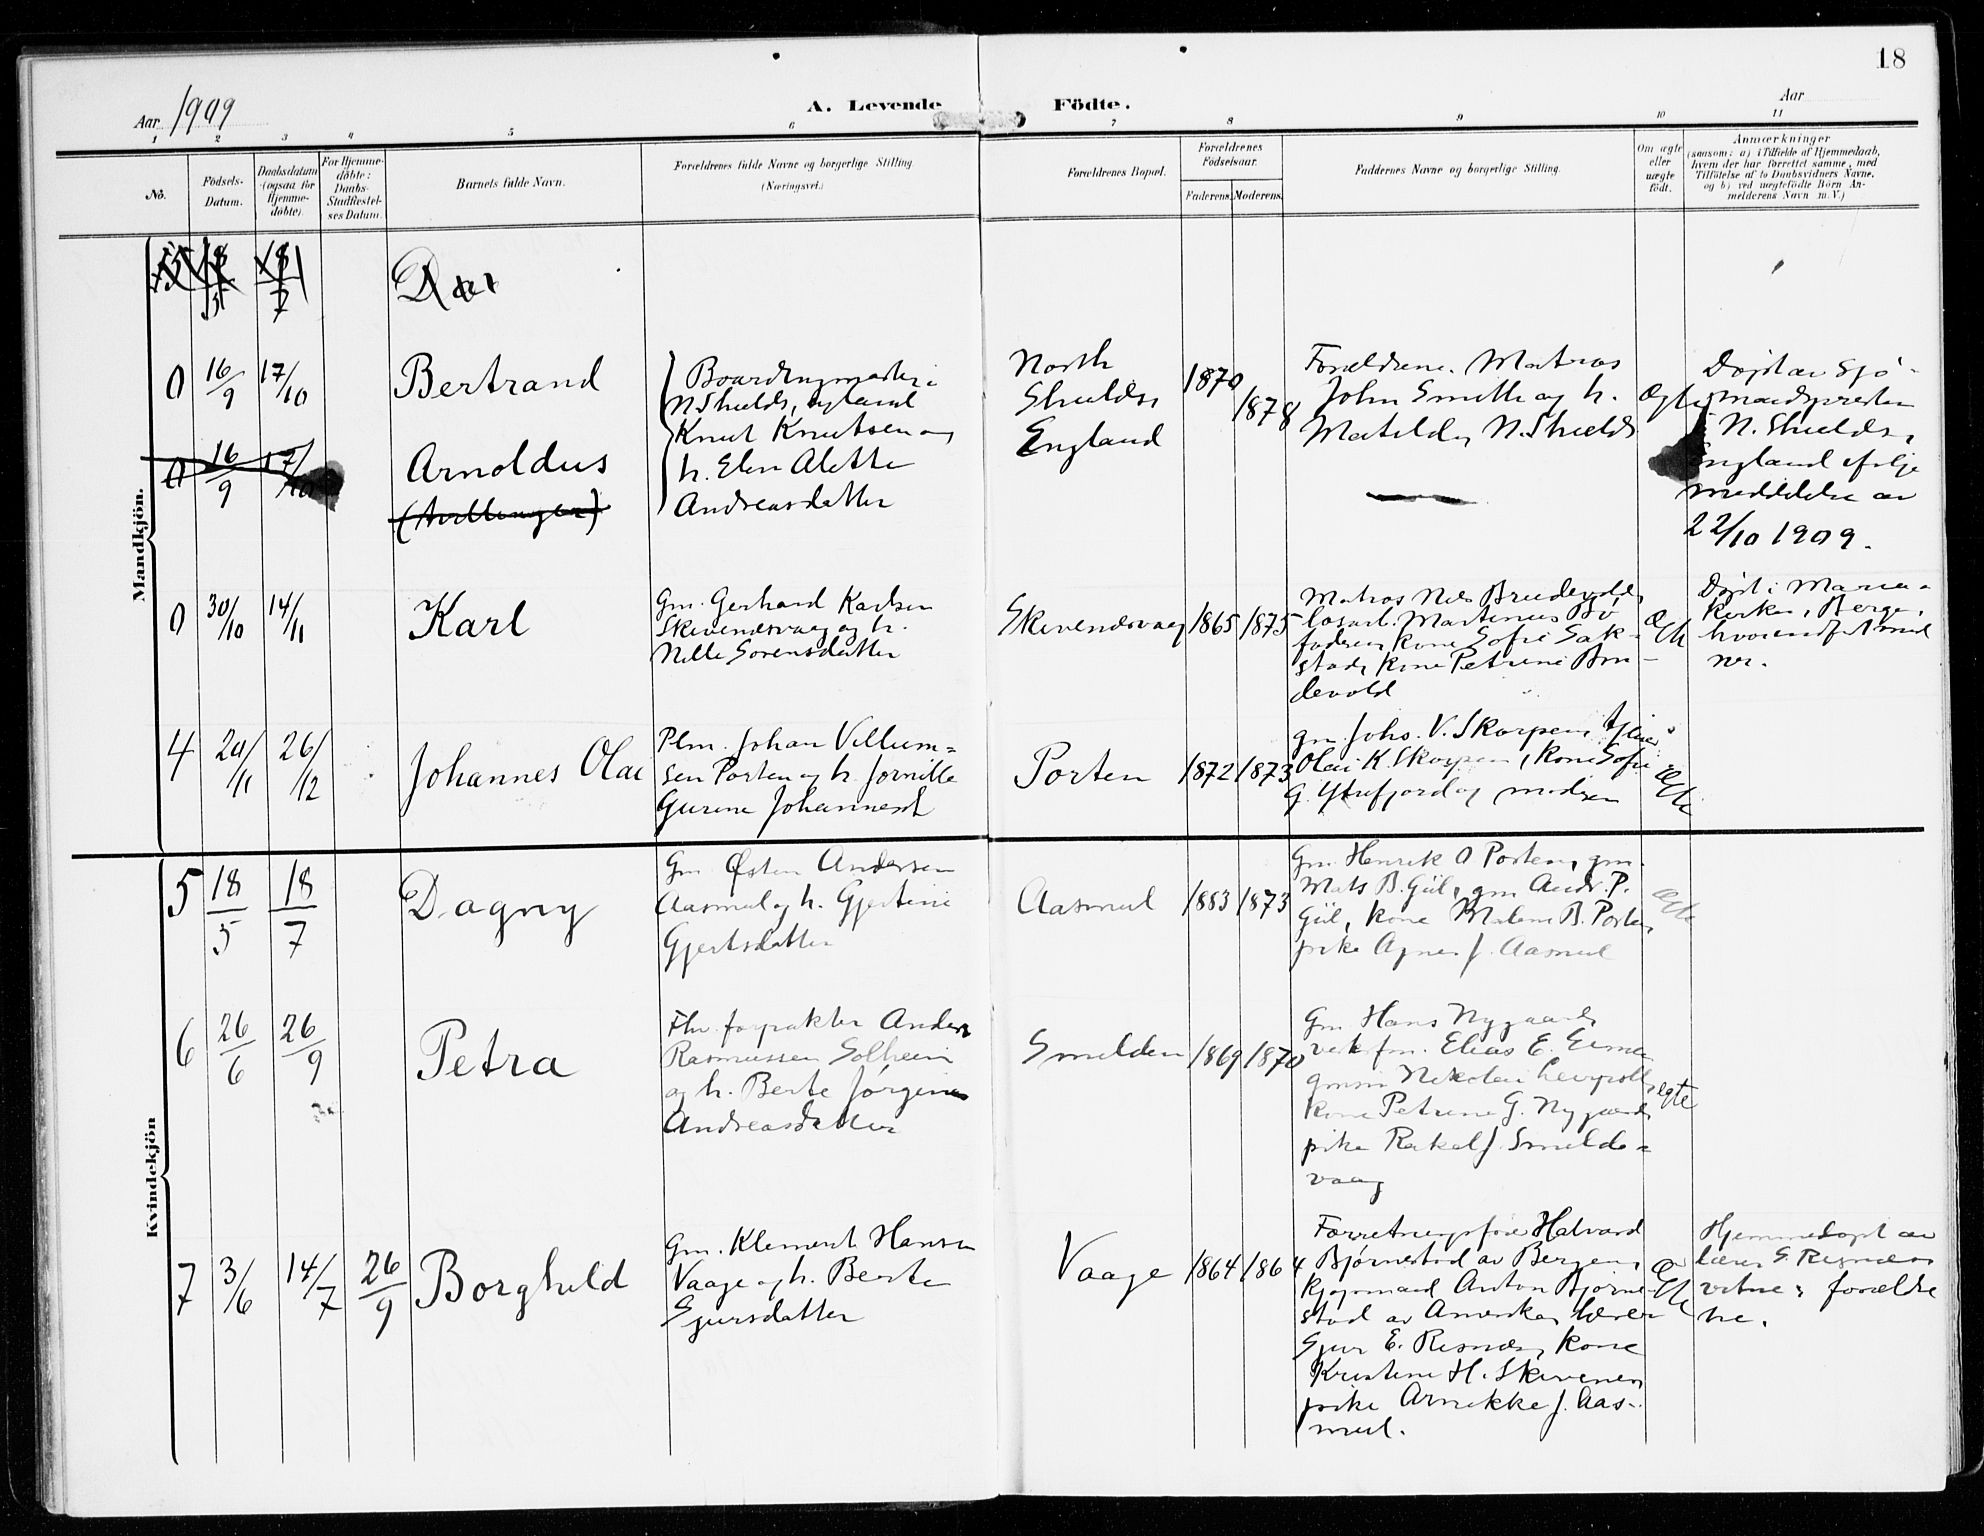 18
Aar 1909
A. Levende Födte.
Aar
1 2 3 4 5 6 7 8 9 10 11
No.
Födsels-
Datum.
Daabsdatum
(ogsaa for
Hjemme-
döbte).
For Hjemme-
döbte:
Daabs-
Stadfæstel-
ses Datum.
Barnets fulde Navn.
Forældrenes fulde Navne og borgerlige Stilling
(Næringsvei.)
Forældrenes Bopæl.
Forældrenes
Födselsaar.
Faderens. Moderens.
Faddernes Navne og borgerlige Stilling
Om ægte
eller
uægte
født.
Anmærkninger
(saasom: a) i Tilfælde af Hjemmedaab,
hvem der har forrettet samme, med
Tilföielse af to Daabsvidners Navne,
og b) ved uægtefödte Börn An-
melderens Navn m. V.)
Mandkjön.
18/5 18/7
0 16/9 17/10 Bertrand
N. Shields, England
Knut Knutsen og
h. Elen Alette
Andreasdatter
North
Shields,
England
1870
1878
Forældrene. Matros
John Smith og h.
Matilda, N. Shields
Ægte
Døpt av sjø-
mandspresten
i N. Shields,
England ifølge
meddelelse av
22/10 1909.
0 16/9 17/10 Arnoldus
(tvillinger)
0 30/10 14/11 Karl
Gm. Gerhard Karlsen
Skivenesvaag og h.
Nille Sørensdatter
Skivenesvaag 1865 1875
Matros Nils Brudevold,
løsarb. Martinus Bö
faderen, kone Sofie Sak-
stad, kone Petrine Bru-
devold
Ægte
Døpt i Maria-
kirken, Bergen,
4 20/11 26/12 Johannes Olai
Plm. Johan Villum-
sen Porten og h. Jornille
Gurine Johannesd.
Porten 1872 1873
gm. Johs. V. Skorpen, tjener
Olai K. Skorpen, kone Sofie
G. Ytrefjord og moderen
Ægte
Kvindekjön
5 18/5 18/7 Dagny
Gm. Østen Andersen
Aasmul og h. Gjertine
Gjertsdatter
Aasmul 1883 1873
Gm. Henrik O Porten, gm.
Mats B. Giil, gm Andr. P.
Giil, kone Malene B. Porten,
pike Agnes J. Aasmul
ægte
6 26/6 26/9 Petra
Fhv. forpakter Anders
Rasmussen Solheim
og h. Berte Jørgine
Andreasdatter
Smelden 1869 1870
Gm Hans Nygaard,
kone Petrine G. Nygaard,
pike Rakel J. Smelde-
vaag
ægte
7 3/6 14/7 26/9 Borghild
Gm. Klement Hansen
Vaage og h. Berte
Gjursdatter
Vaage 1864 1864
Forretningsfører Halvard
Bjørnestad av Bergen,
kjøpmand Anton Bjørne-
stad av Amerika, lærer
Gjur E. Risnæs, kone
Kristine H. Skivenes,
pike Arnikke J. Aas-
mul.
Ægte
Hjemmedøpt av
lærer G. Risnæs
vitne: foræld-
re.